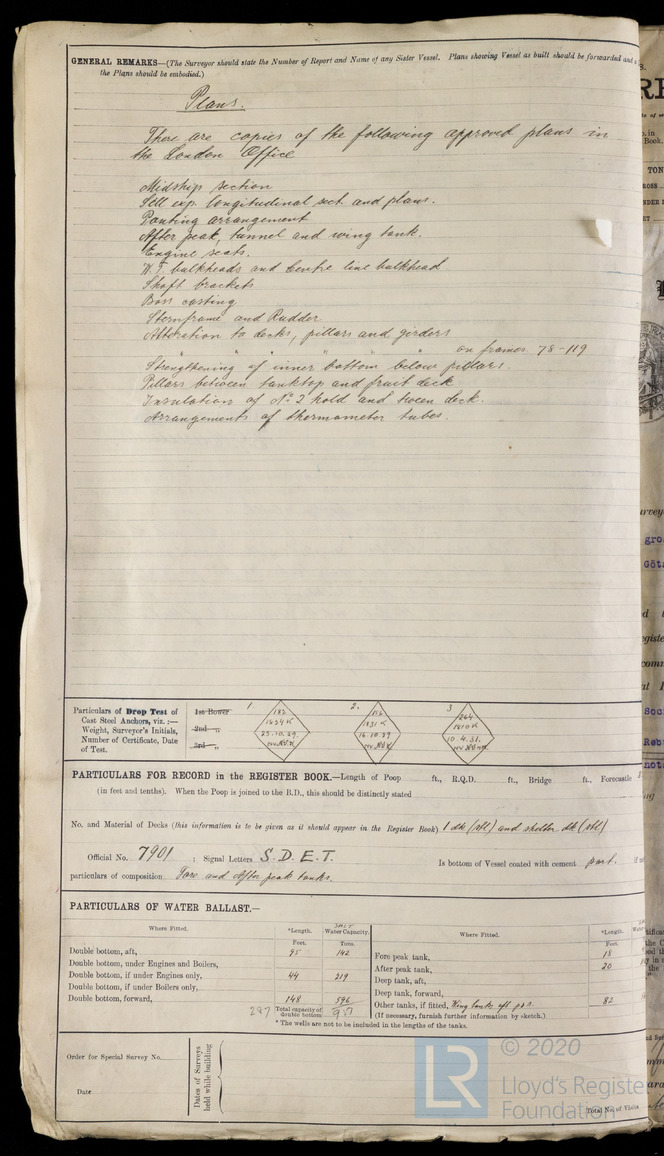 GENERAL REMARKS—(The Surveyor should state the Number of Report and Name of any Sister Vessel. Plans showing Vessel as built should be forwarded and
the Plans should be embodied.)
Plans.
There are copies of the following approved plans in
the London Office
Midship section
Sell exp longitudinal sect. and plans.
Panting arrangement
After peak, tunnel and wing tank.
Engine seats.
W.T. bulkheads and Centre line bulkhead
Shaft brackets
Boss casting
Sternframe and Rudder
Alteration to decks, pillars and girders
" " " " " on frames 78-119
Strengthening of inner bottom below pillars.
Pillars between tanktop and fruit deck
Insulation of No 2 hold and tween deck.
Arrangements of thermometer tubes.
Particulars of Drop Test of
Cast Steel Anchors, viz. :—
Weight, Surveyor's Initials,
Number of Certificate, Date
of Test.
1st Bower
2nd „
3rd „
1
182
25.10.29
2.
16.10.29
3
264
10.4.31
PARTICULARS FOR RECORD in the REGISTER BOOK.—Length of Poop ft., R.Q.D. ft., Bridge ft., Forecastle
(in feet and tenths). When the Poop is joined to the B.D., this should be distinctly stated
No. and Material of Decks (this information is to be given as it should appear in the Register Book) 1 dk (stl) and shelter dk (stl)
Official No. 7901 ; Signal Letters S.D.E.T. Is bottom of Vessel coated with cement part.
particulars of composition Fore and After peak tanks.
PARTICULARS OF WATER BALLAST.—
Where Fitted. *Length. SALT Water Capacity. Where Fitted. *Length.
Feet. Tons. Feet.
Double bottom, aft, 95 142
Double bottom, under Engines and Boilers,
Double bottom, if under Engines only, 44 219
Double bottom, if under Boilers only,
Double bottom, forward, 148 596
287 Total capacity of double bottom 957
Fore peak tank, 18
After peak tank, 20
Deep tank, aft,
Deep tank, forward,
Other tanks, if fitted, Wing tanks aft p&s. 82
(If necessary, furnish further information by sketch.)
* The wells are not to be included in the lengths of the tanks.
Order for Special Survey No.
Date
Dates of Surveys
held while building
Total No. of Visits
LR
© 2020
Lloyd's Registe
Foundation